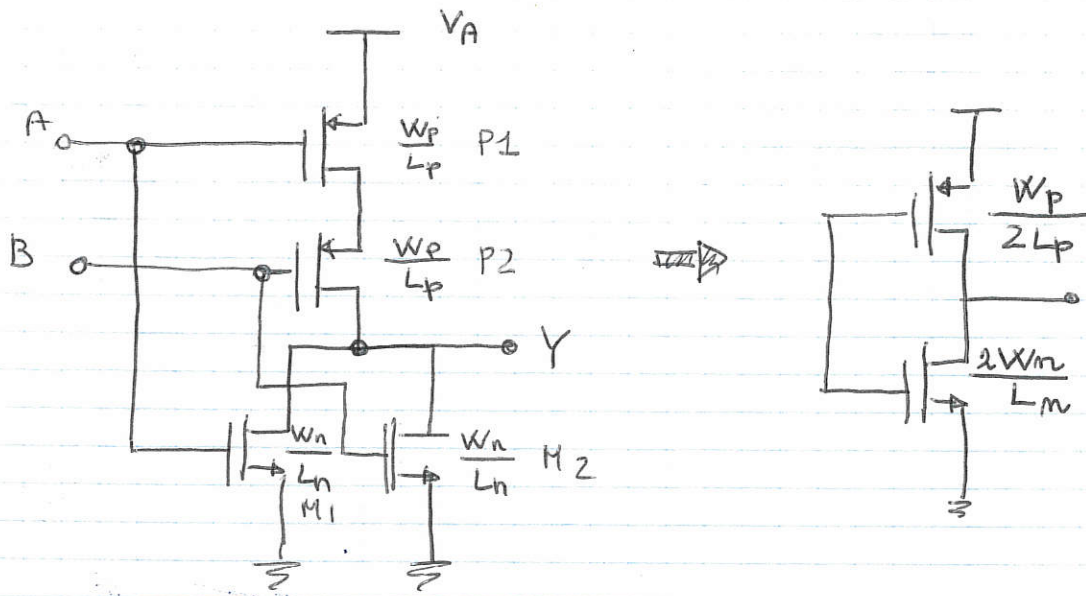 V_A
A
W_p/L_p P1
B
W_p/L_p P2
Y
W_n/L_n
M_1
W_n/L_n M_2
W_p/2L_p
2W_n/L_n